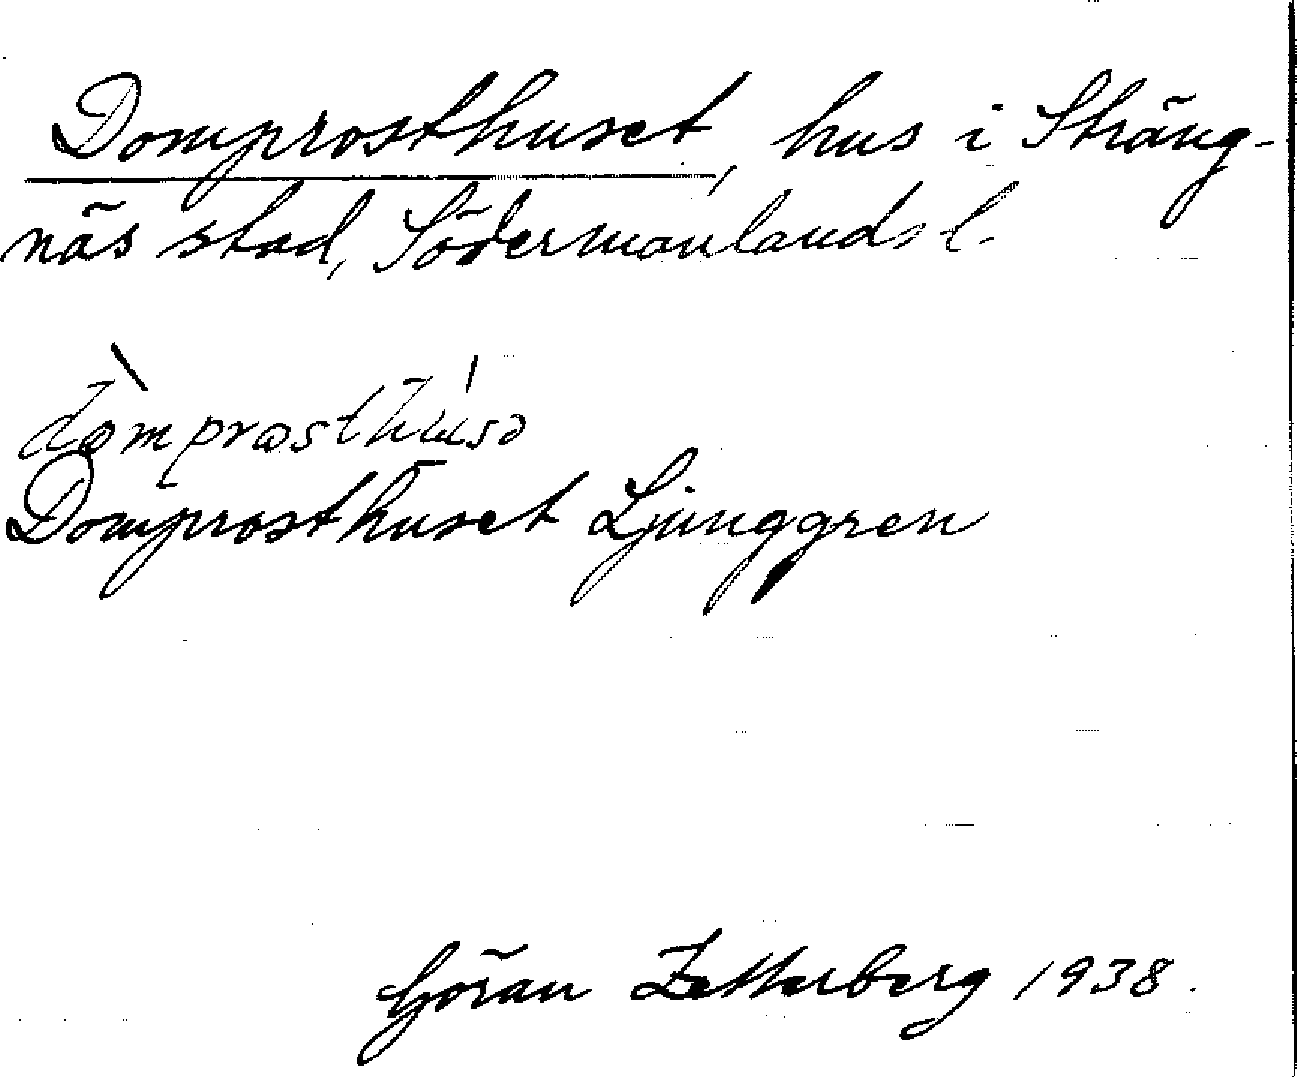 Domprosthuset, hus i Sträng-
näs stad, Södermanlands l.
dòmprosthu̍sə
Domprosthuset Ljunggren
Göran Zetterberg 1938.